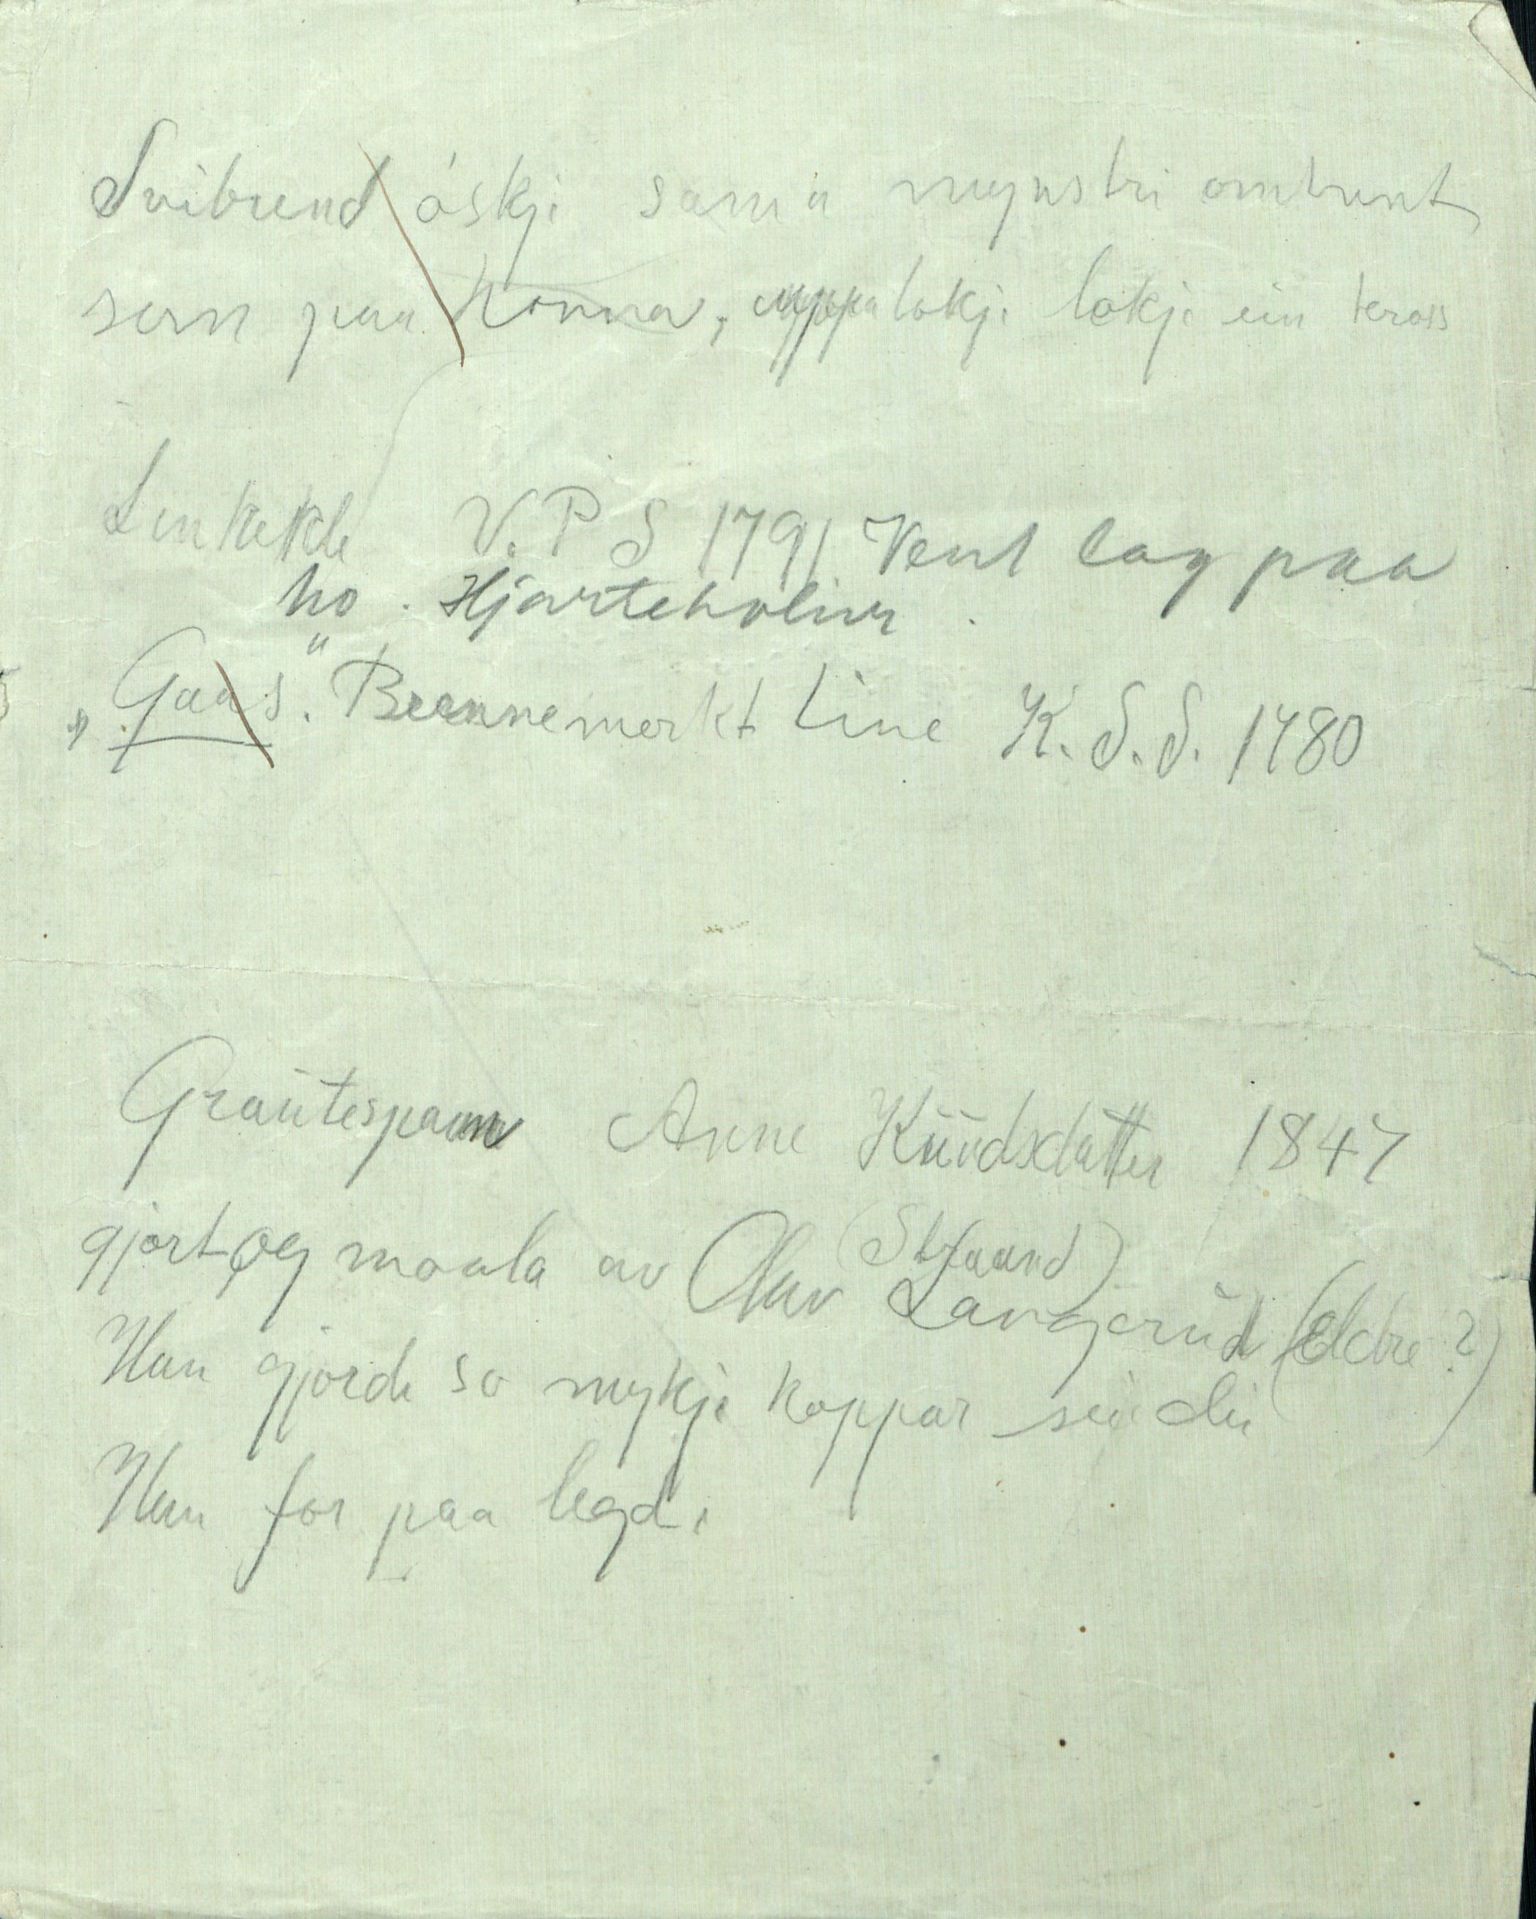 Svibrend óskje sama mynstri omtrent
som paa honna, uppa lokji lokji ein kross
Linkekle V. P S 1791 Vent lag paa
ho. Hjarteholur.
"Gaas". Brennemerkt Line K. S. S. 1780
Graútespann Anne Knúdsdatter 1847
gjort og maala av Olav (Straand) Langerúd (eldre?)
Han gjorde so mykje koppar sie dei
Han for paa legd.